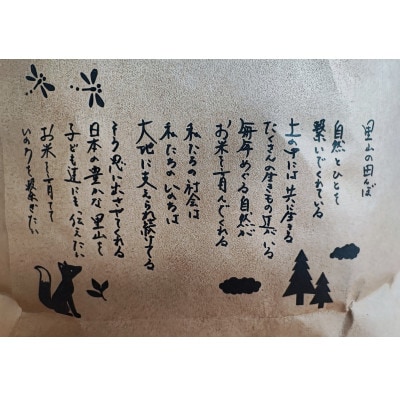 里山の田んぼ
自然とひとを
繋いでくれている
土の中には 共に生きる
たくさんの生きもの具いる
毎年めぐる自然が
お米を育んでくれる
私たちの社会は
私たちのいのちは
大地に支えられ続けてる
そう思い出させてくれる
日本の豊かな里山を
子ども達にも伝えたい
お米を育てて
いのちを繋ぎたい